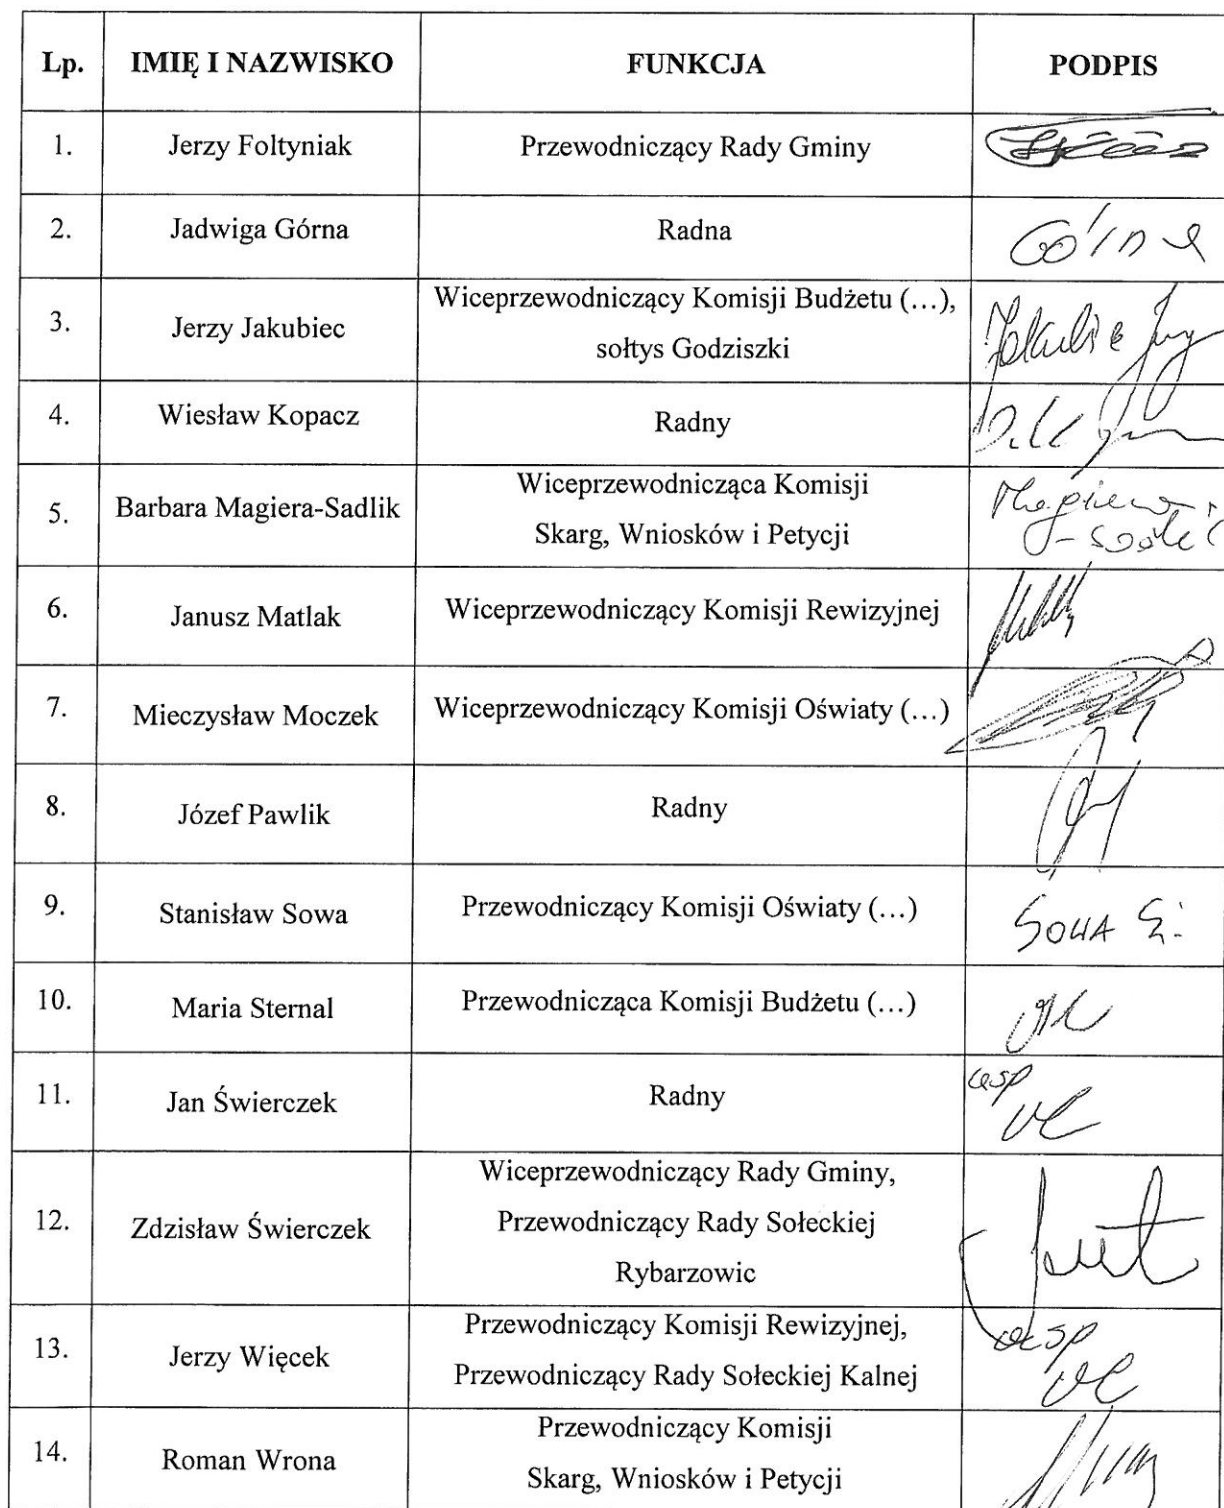 Lp. IMIĘ I NAZWISKO FUNKCJA PODPIS
1. Jerzy Foltyniak Przewodniczący Rady Gminy
2. Jadwiga Górna Radna Górna
3. Jerzy Jakubiec Wiceprzewodniczący Komisji Budżetu (…),
sołtys Godziszki
4. Wiesław Kopacz Radny
5. Barbara Magiera-Sadlik Wiceprzewodnicząca Komisji
Skarg, Wniosków i Petycji
6. Janusz Matlak Wiceprzewodniczący Komisji Rewizyjnej
7. Mieczysław Moczek Wiceprzewodniczący Komisji Oświaty (…)
8. Józef Pawlik Radny
9. Stanisław Sowa Przewodniczący Komisji Oświaty (…) SOWA S.
10. Maria Sternal Przewodnicząca Komisji Budżetu (…)
11. Jan Świerczek Radny
12. Zdzisław Świerczek Wiceprzewodniczący Rady Gminy,
Przewodniczący Rady Sołeckiej
Rybarzowic
13. Jerzy Więcek Przewodniczący Komisji Rewizyjnej,
Przewodniczący Rady Sołeckiej Kalnej
14. Roman Wrona Przewodniczący Komisji
Skarg, Wniosków i Petycji